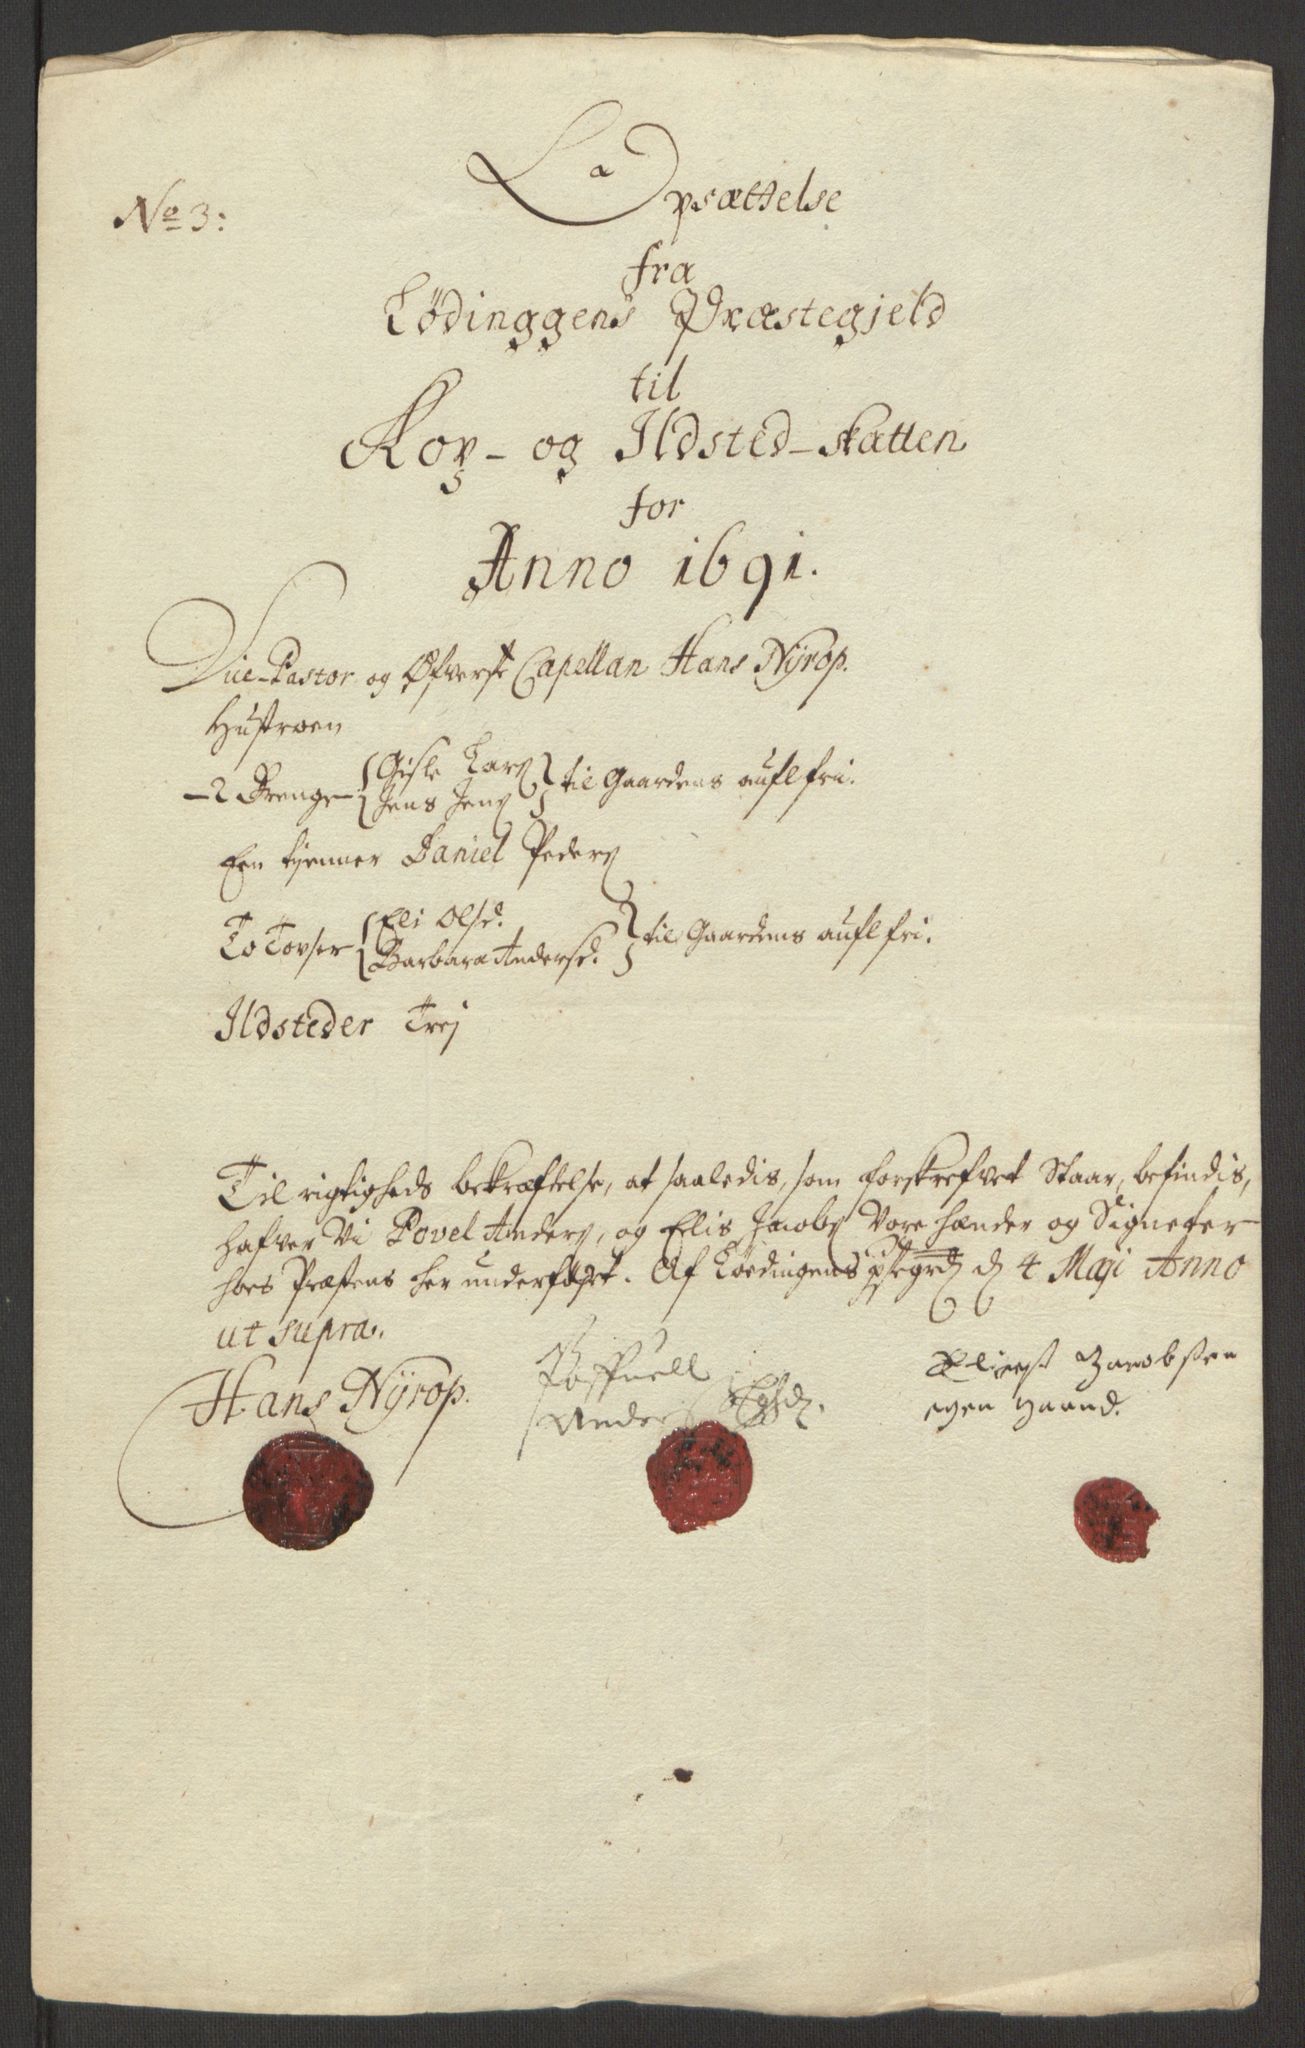 No 3:
Opsættelse
fra
Lödinggens Præstegjeld
til
Kop- og Ildsted-skatten
for
Anno 1691.
Vice-Pastor og Øfverste Capellan Hans Nÿrop.
Hustroen
- 2 Drenge { Gisle Lars / Jens Jens } til Gaardens aufl fri.
Een tjenner Daniel Peders
To Tøvser { Eli Olsd. / Barbara Andersd. } til Gaardens aufl fri.
Ildsteder Trej
Til rigtigheds bekræftelse, at saaledis, som forskrefvet Staar, befindis,
hafver Vi Povel Anders, og Elis Jacobs Vore hænder og Signeter
hoes Præstens her underføjet. Af Lœdingens 4 Maji Anno
ut supra.
Hans Nÿrop.
Poffuell
Anders
Eliess Jacobsen
egen Haand.